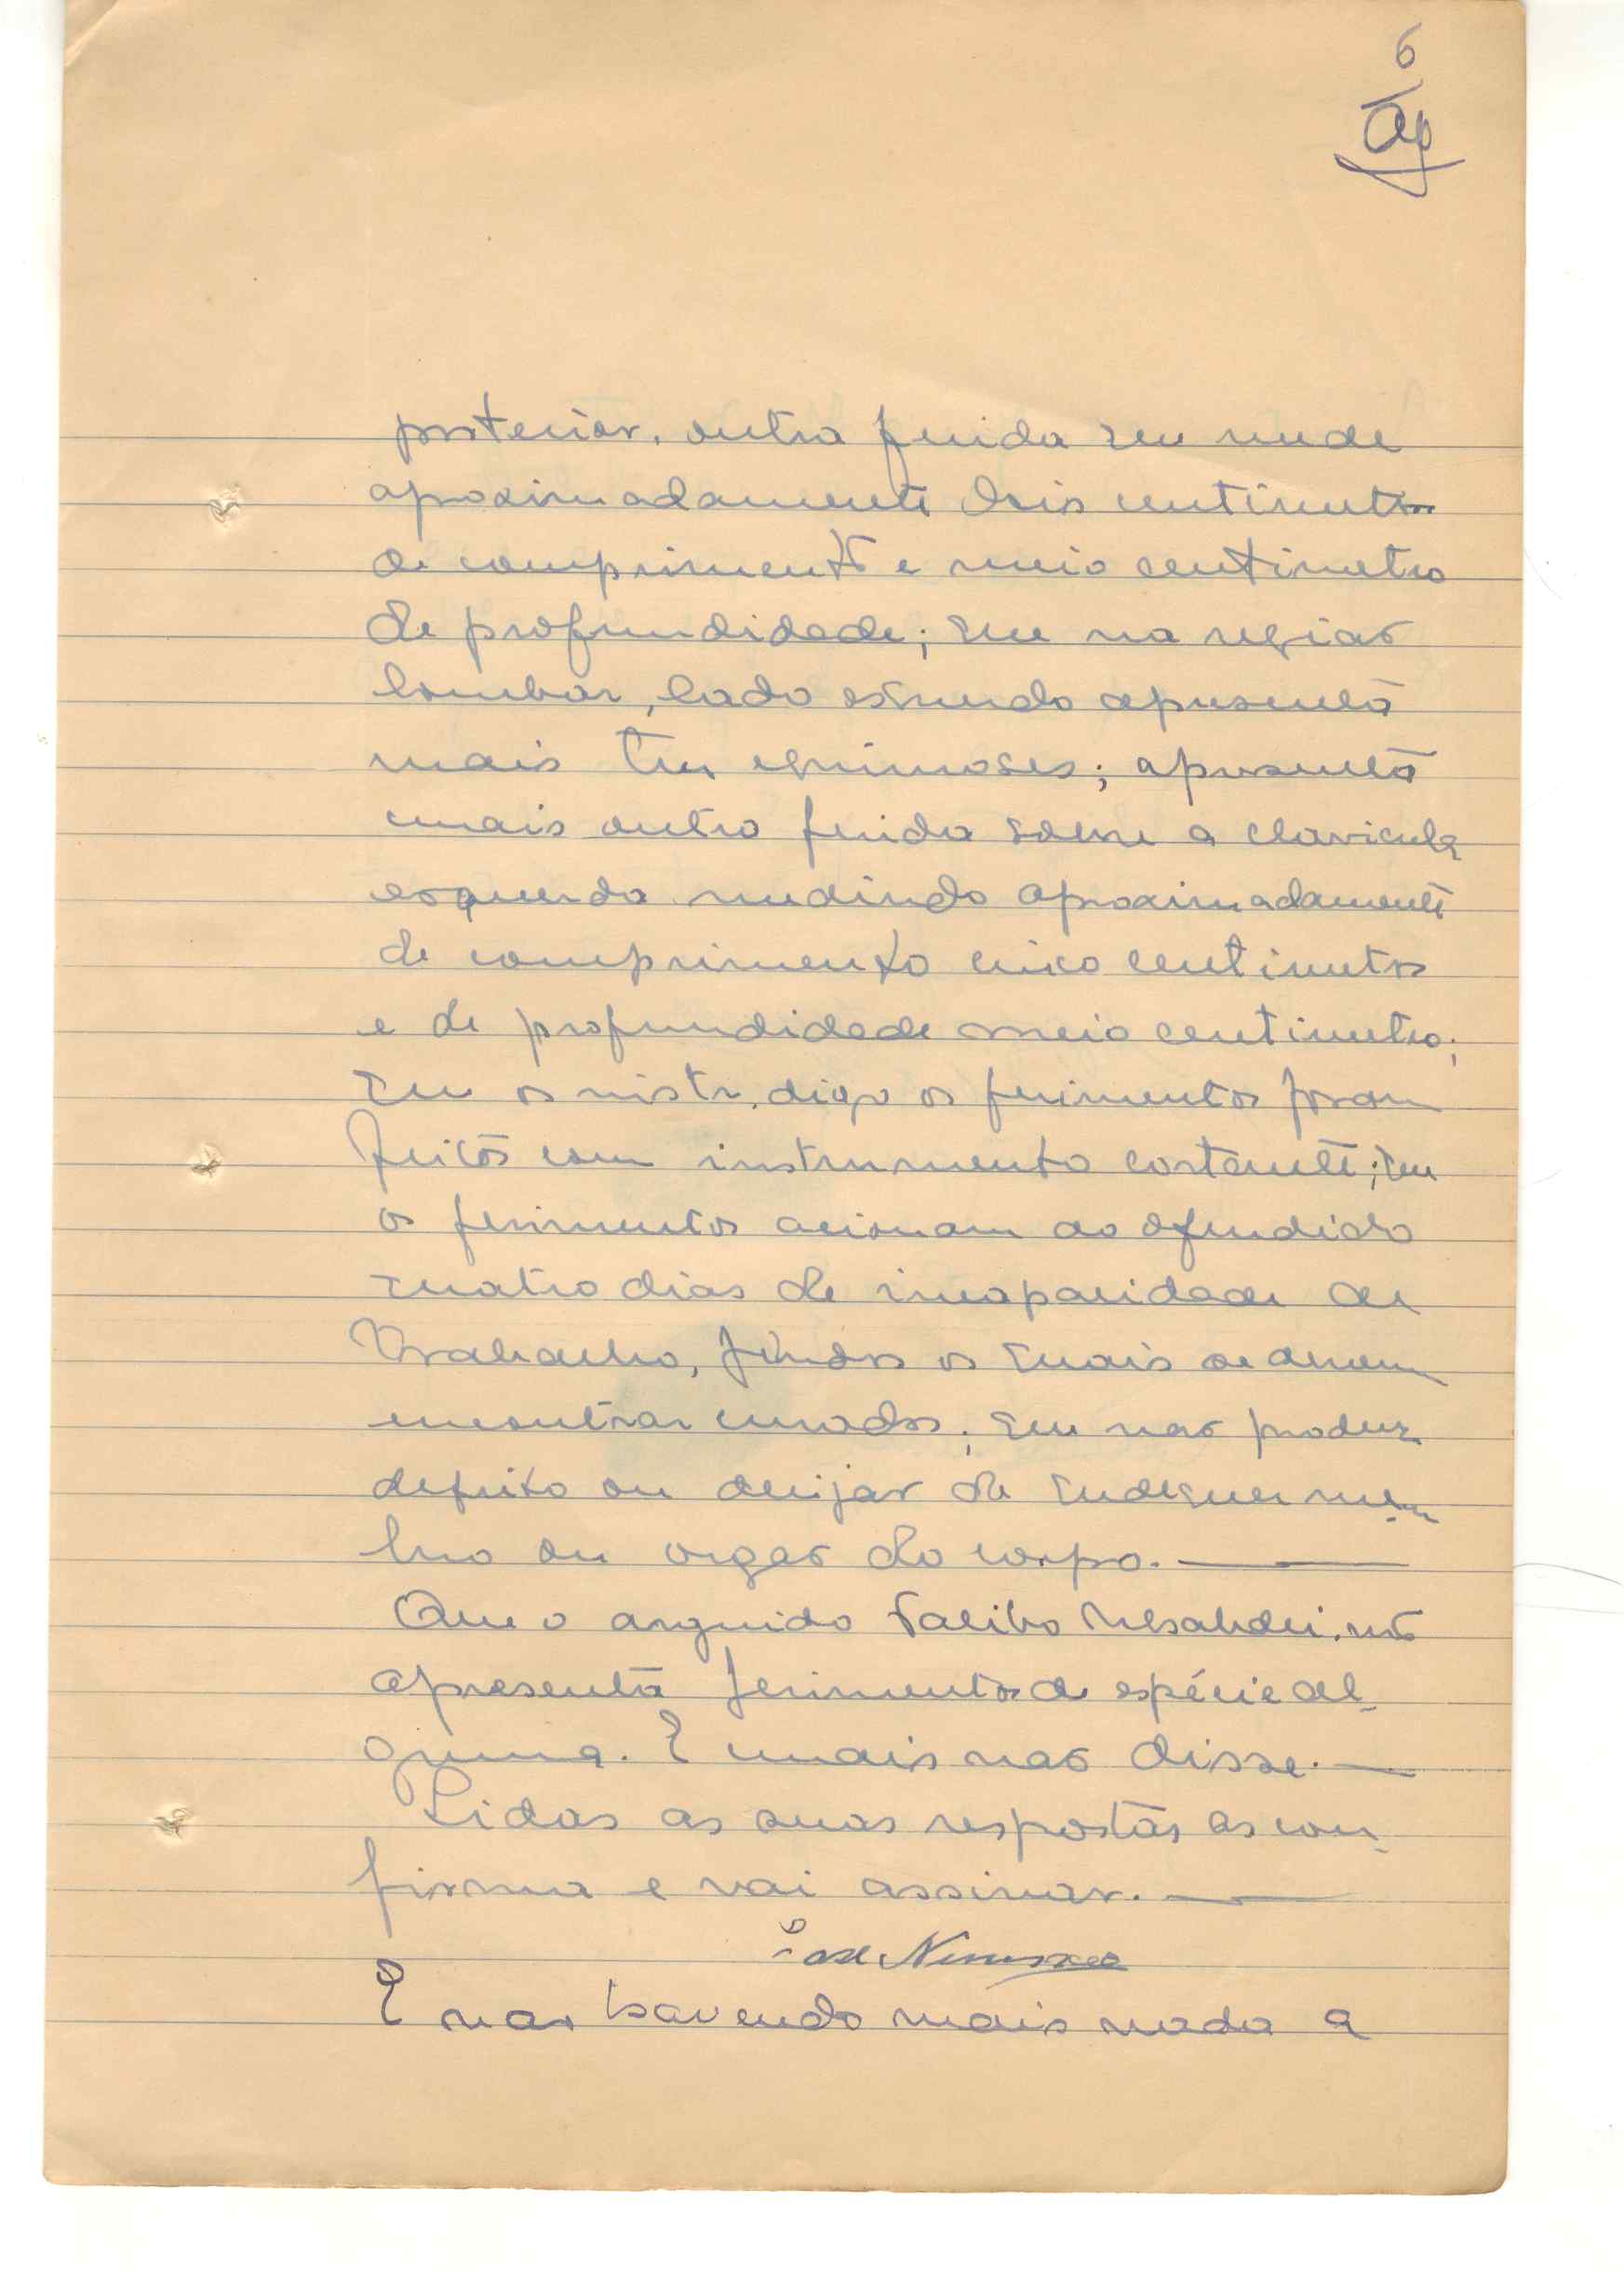 6
posterior, outra ferida que mede
aproximadamente dois centimetros
de comprimento e meio centimetro
de profundidade; que na região
lombar, lado esquerdo apresenta
mais tres equimoses; apresenta
mais outra ferida sobre a clavicula
esquerda medindo aproximadamente
de comprimento cinco centimetros
e de profundidade meio centimetro;
que os digo os ferimentos foram
feitos com instrumento cortante; que
os ferimentos acionam ao ofendido
quatro dias de incapacidade de
trabalho, findos os quais se devem
encontrar curados; que não produz
defeito ou aleijão de qualquer mem-
bro ou orgão do corpo.
Que o arguido não
apresenta ferimentos de espécie al-
guma. E mais não disse.
Lidas as suas respostas as con-
firma e vai assinar.
José
E não havendo mais nada a